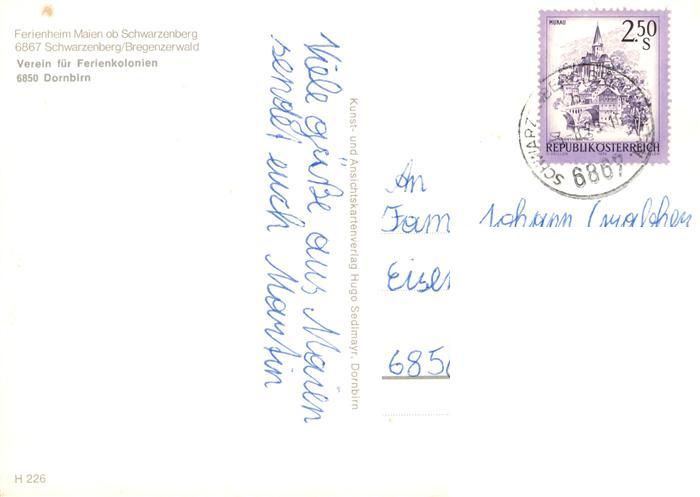 Ferienheim Maien ob Schwarzenberg
6867 Schwarzenberg/Bregenzerwald
Verein für Ferienkolonien
6850 Dornbirn
Viele grüße aus Maien
sendet euch Martin
Kunst- und Ansichtskartenverlag Hugo Sedlmayr, Dornbirn
MURAU
2.50
S
REPUBLIK ÖSTERREICH
6867
An
Fam Johann
685
H 226